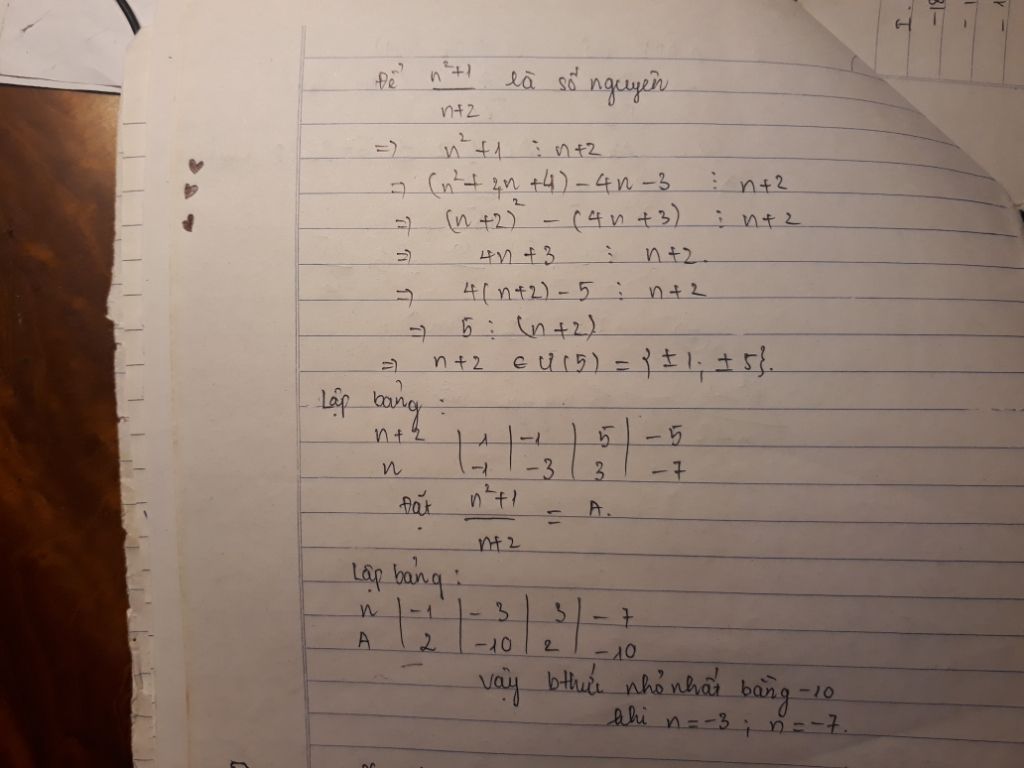 Để n²+1/n+2 là số nguyên
=> n²+1 ⋮ n+2
=> (n²+4n+4)-4n-3 ⋮ n+2
=> (n+2)² - (4n+3) ⋮ n+2
=> 4n+3 ⋮ n+2.
=> 4(n+2)-5 ⋮ n+2
=> 5 ⋮ (n+2)
=> n+2 ∈ Ư(5) = {±1; ±5}.
Lập bảng :
n+2 | 1 | -1 | 5 | -5
n | -1 | -3 | 3 | -7
Đặt n²+1/n+2 = A.
Lập bảng :
n | -1 | -3 | 3 | -7
A | 2 | -10 | 2 | -10
Vậy bthức nhỏ nhất bằng -10
khi n=-3 ; n=-7.